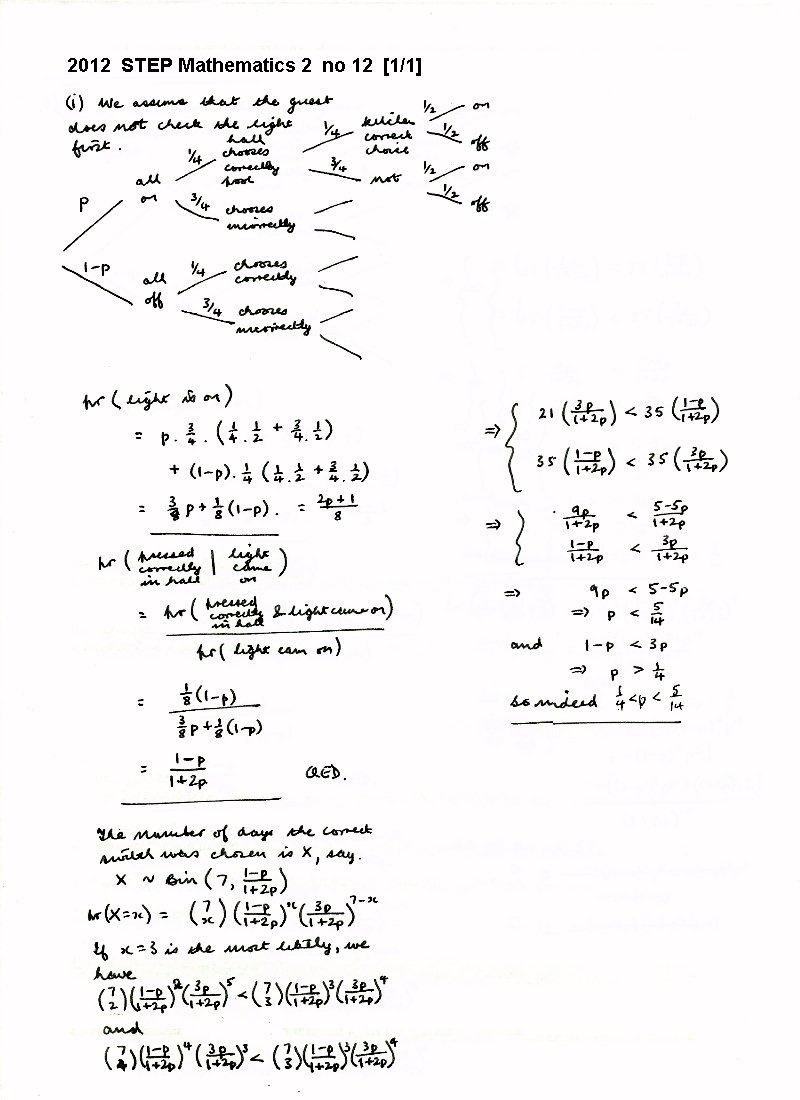 2012 STEP Mathematics 2 no 12 [1/1]
(i) We assume that the guest
does not check the light
first.
p
all
on
1/4
hall
chooses
correctly
3/4
chooses
incorrectly
1/4
kitchen
correct
choice
3/4
not
1/2
on
1/2
off
1/2
on
1/2
off
1-p
all
off
1/4
chooses
correctly
3/4
chooses
incorrectly
pr (light is on)
= p. 3/4 . (1/4 . 1/2 + 3/4 . 1/2)
+ (1-p). 1/4 (1/4 . 1/2 + 3/4 . 1/2)
= 3/8 p + 1/8 (1-p). = (2p+1)/8
pr ( pressed correctly in hall | light came on )
= pr ( pressed correctly in hall & light came on)
pr ( light cam on)
= 1/8 (1-p) / (3/8 p + 1/8 (1-p))
= (1-p)/(1+2p) QED.
The number of days the correct
switch was chosen is X, say.
X ~ Bin (7, (1-p)/(1+2p))
pr(X=x) = (7 x) ((1-p)/(1+2p))^x (3p/(1+2p))^(7-x)
If x=3 is the most likely, we
have
(7 2) ((1-p)/(1+2p))^2 (3p/(1+2p))^5 < (7 3) ((1-p)/(1+2p))^3 (3p/(1+2p))^4
and
(7 4) ((1-p)/(1+2p))^4 (3p/(1+2p))^3 < (7 3) ((1-p)/(1+2p))^3 (3p/(1+2p))^4
⇒ { 21 (3p/(1+2p)) < 35 ((1-p)/(1+2p))
35 ((1-p)/(1+2p)) < 35 (3p/(1+2p))
⇒ { 9p/(1+2p) < (5-5p)/(1+2p)
(1-p)/(1+2p) < 3p/(1+2p)
⇒ 9p < 5-5p
⇒ p < 5/14
and 1-p < 3p
⇒ p > 1/4
so indeed 1/4 < p < 5/14